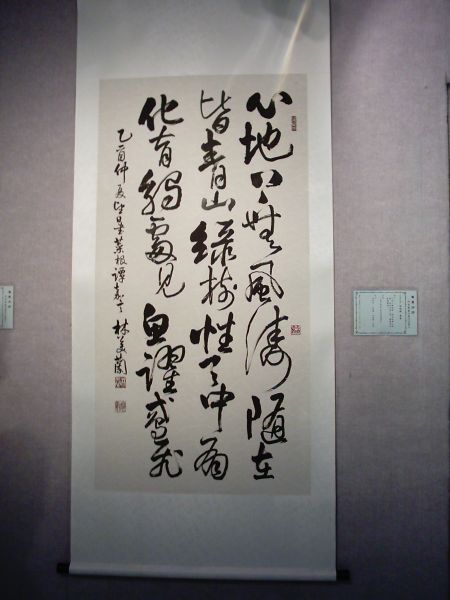 心地上無風濤隨在
皆青山綠樹性天中有
化育觸處見魚躍鳶飛
乙酉仲夏日書菜根譚 林美蘭